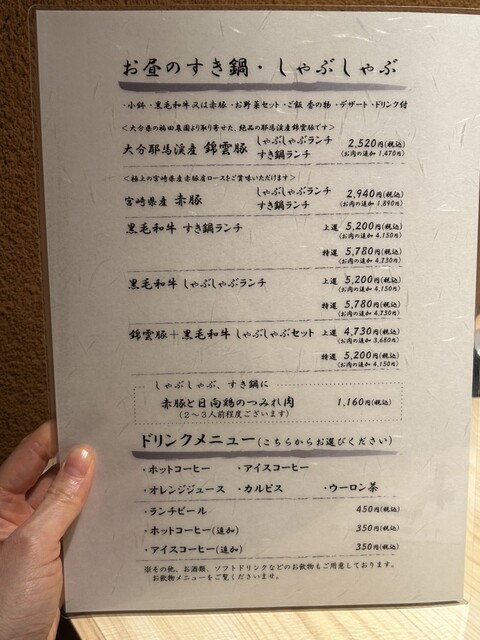 お昼のすき鍋・しゃぶしゃぶ
・小鉢・黒毛和牛又は赤豚・お野菜セット・ご飯 香の物・デザート・ドリンク付
＜大分県の福田農園より取り寄せた、絶品の耶馬渓産錦雲豚です＞
大分耶馬渓産 錦雲豚 しゃぶしゃぶランチ 2,520円(税込)
すき鍋ランチ (お肉の追加 1,470円)
＜極上の宮崎県産赤豚肩ロースをご賞味いただけます＞
宮崎県産 赤豚 しゃぶしゃぶランチ 2,940円(税込)
すき鍋ランチ (お肉の追加 1,890円)
黒毛和牛 すき鍋ランチ 上選 5,200円(税込)
(お肉の追加 4,150円)
特選 5,780円(税込)
(お肉の追加 4,730円)
黒毛和牛 しゃぶしゃぶランチ 上選 5,200円(税込)
(お肉の追加 4,150円)
特選 5,780円(税込)
(お肉の追加 4,730円)
錦雲豚＋黒毛和牛 しゃぶしゃぶセット 上選 4,730円(税込)
(お肉の追加 3,680円)
特選 5,200円(税込)
(お肉の追加 4,150円)
しゃぶしゃぶ、すき鍋に
赤豚と日向鶏のつみれ肉 1,160円(税込)
(２～３人前程度ございます)
ドリンクメニュー(こちらからお選びください)
・ホットコーヒー ・アイスコーヒー
・オレンジジュース ・カルピス ・ウーロン茶
・ランチビール 450円(税込)
・ホットコーヒー(追加) 350円(税込)
・アイスコーヒー(追加) 350円(税込)
※その他、お酒類、ソフトドリンクなどのお飲物もご用意しております。
お飲物メニューをご覧くださいませ。